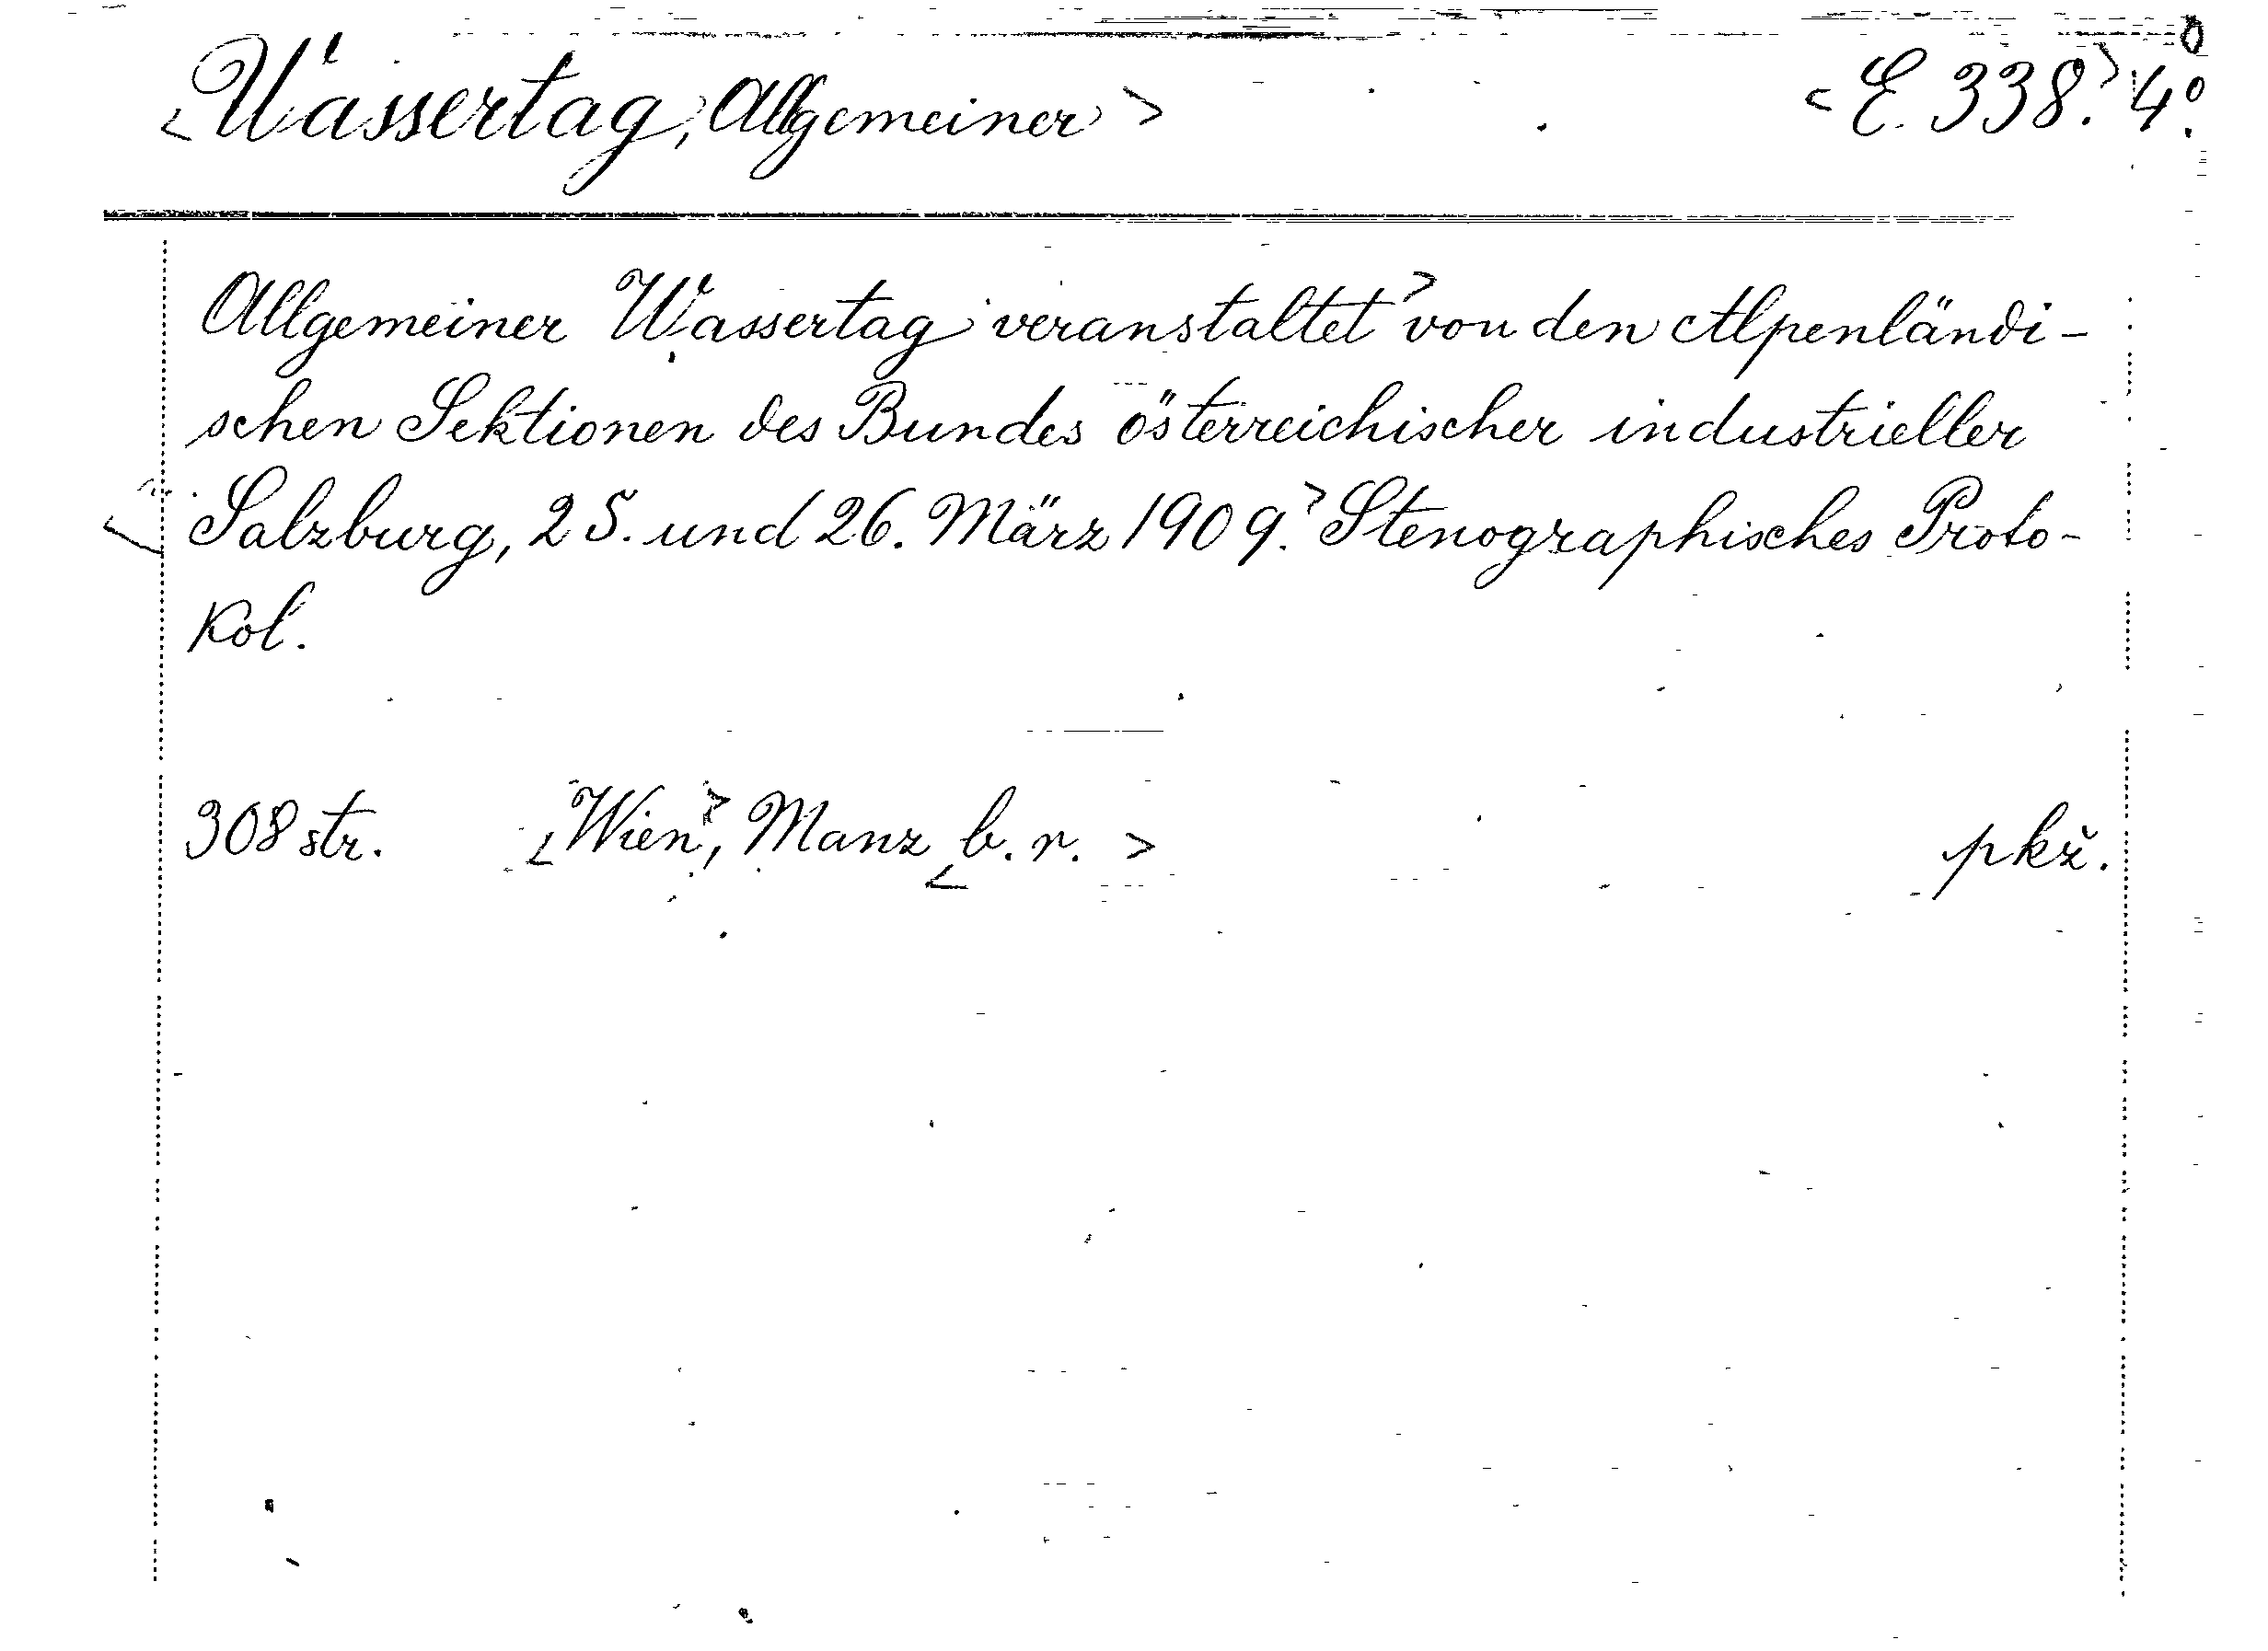 <Wassertag, Allgemeiner> <E. 338.> 4°.
Allgemeiner Wassertag veranstaltet> von den Alpenländi-
schen Sektionen des Bundes österreichischer industrieller
<Salzburg, 25. und 26. März 1909.> Stenographisches Proto-
kol.
308 str. <Wien>, Manz <b. r. > pkž.